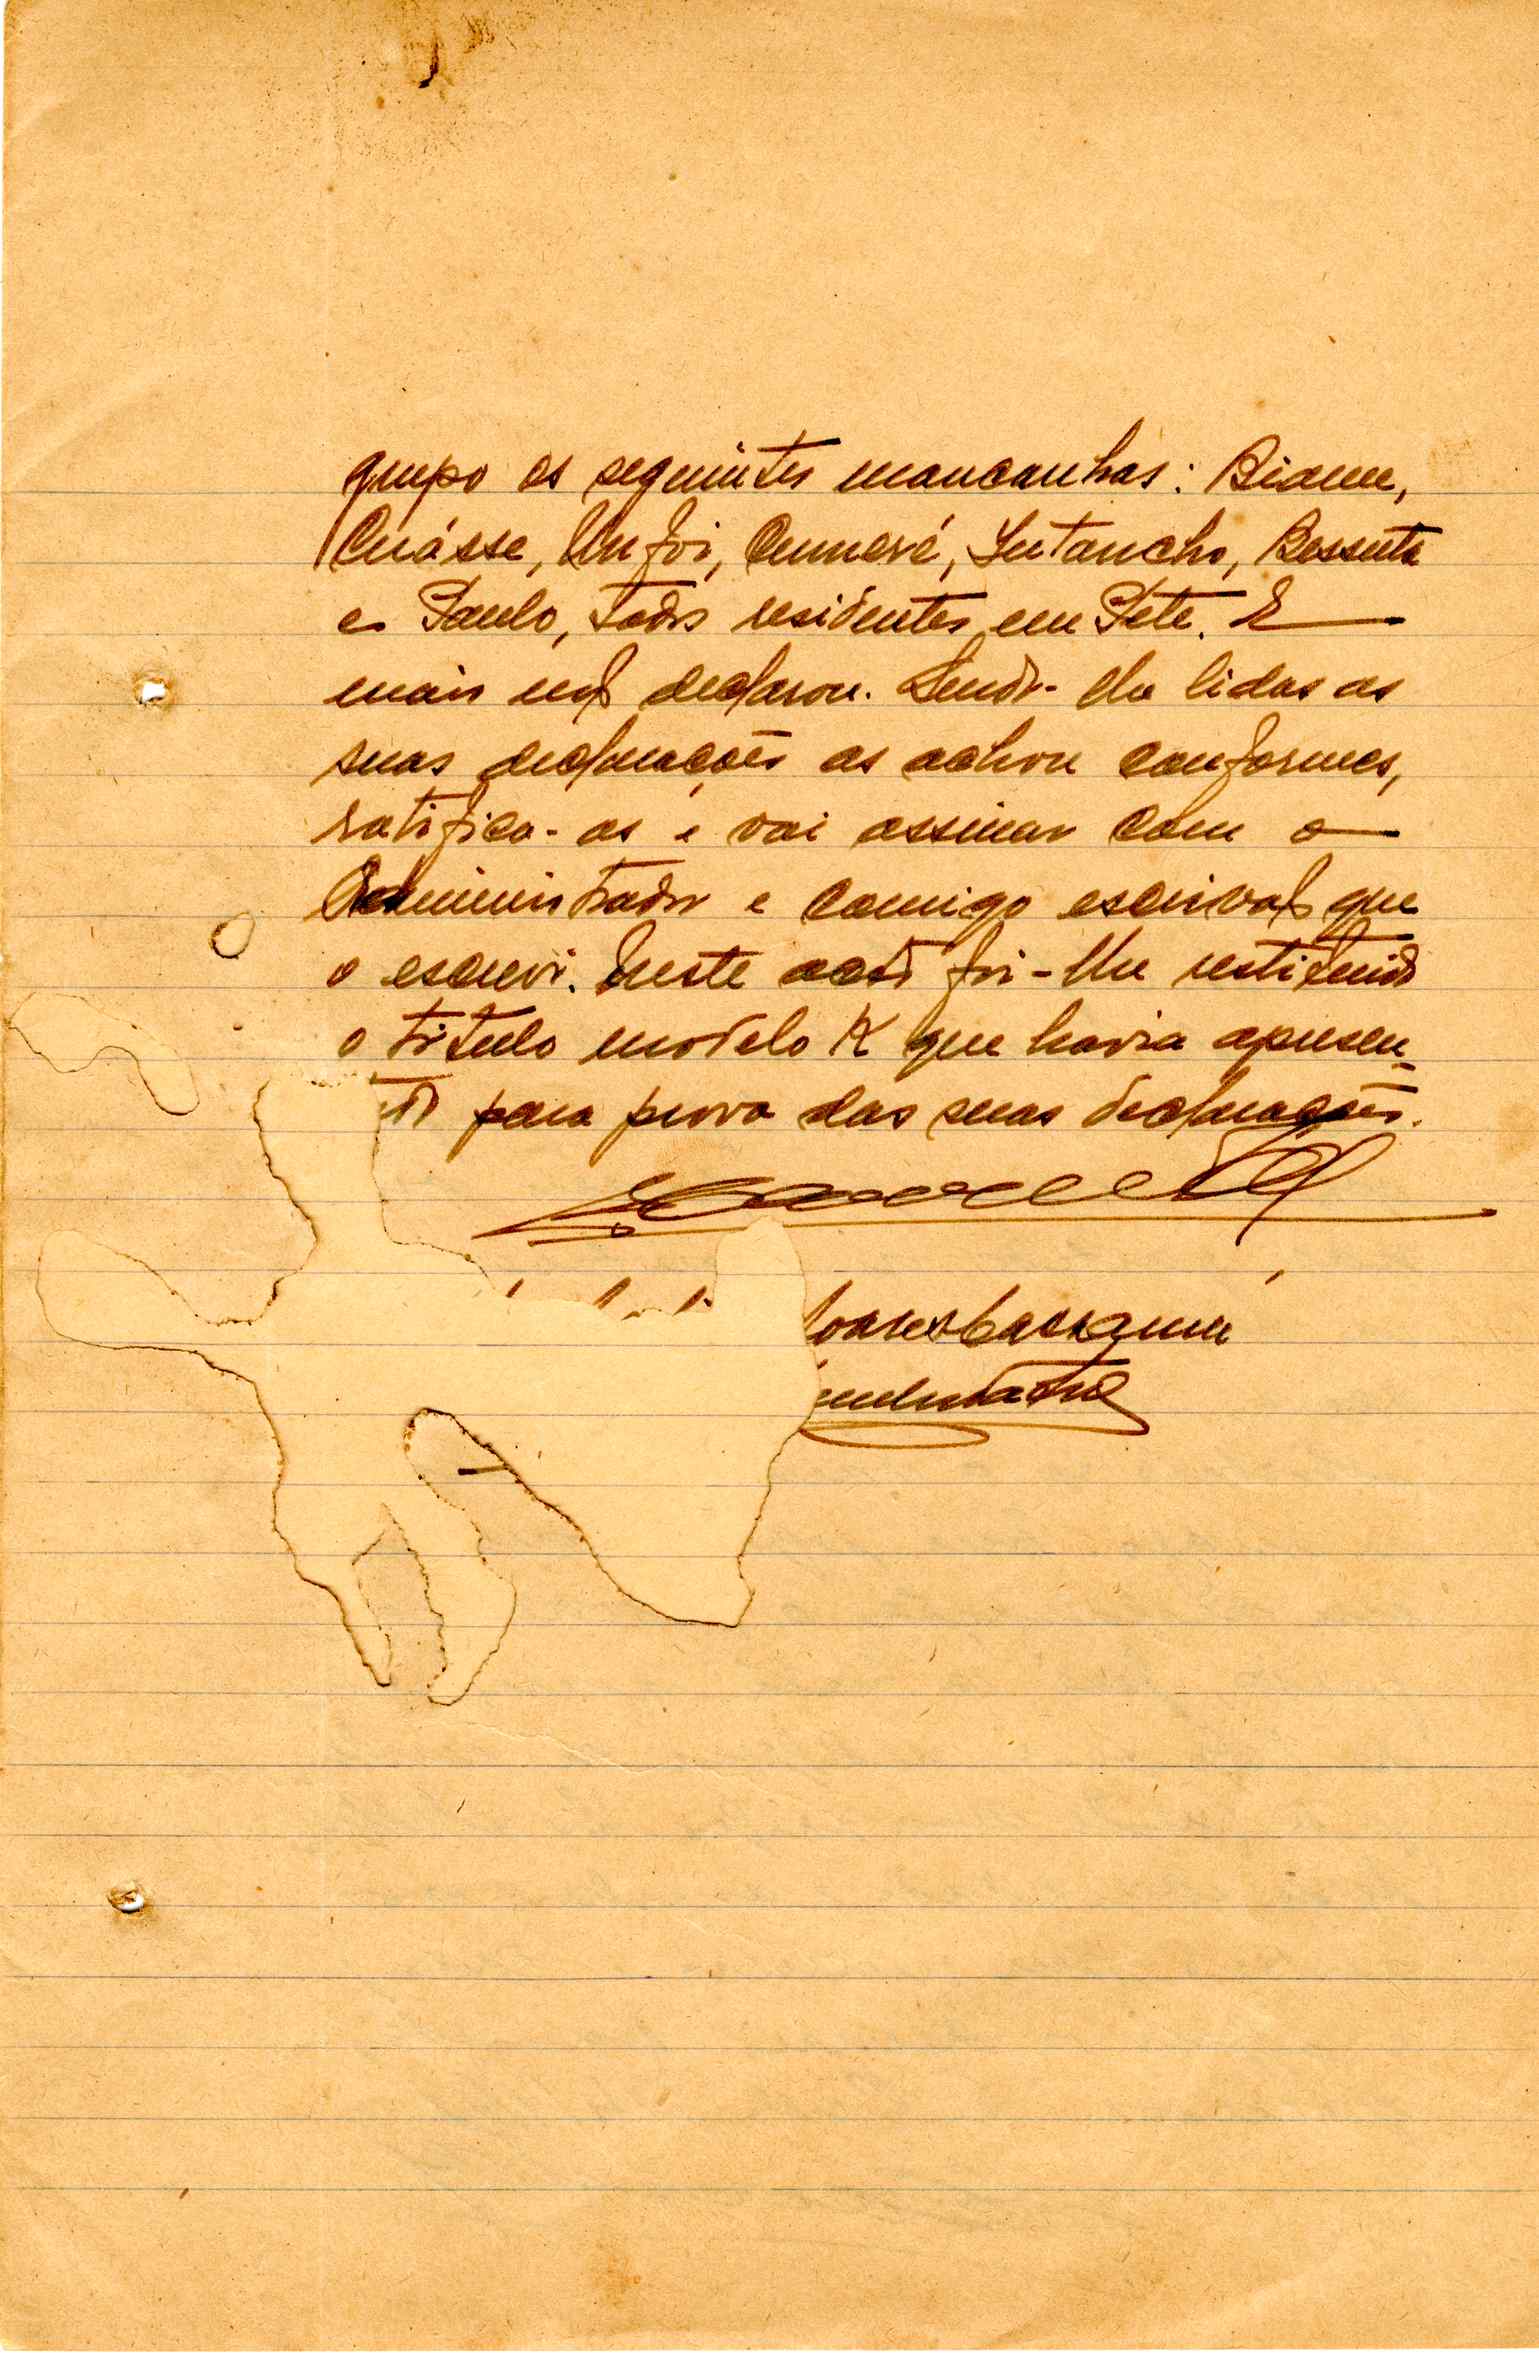 grupo os seguintes mancanhas: Biame,
Cuásse, Unfoi, Cumeré, Intancho, Bessuta
e Paulo, todos residentes em Pete. E
mais não declarou. Sendo-lhe lidas as
suas declarações as achou conformes,
ratifica-as e vai assinar com o
Administrador e comigo escrivão que
o escrevi. Neste acto foi-lhe restituido
o titulo modelo K que havia apresen-
to para prova das suas declarações.